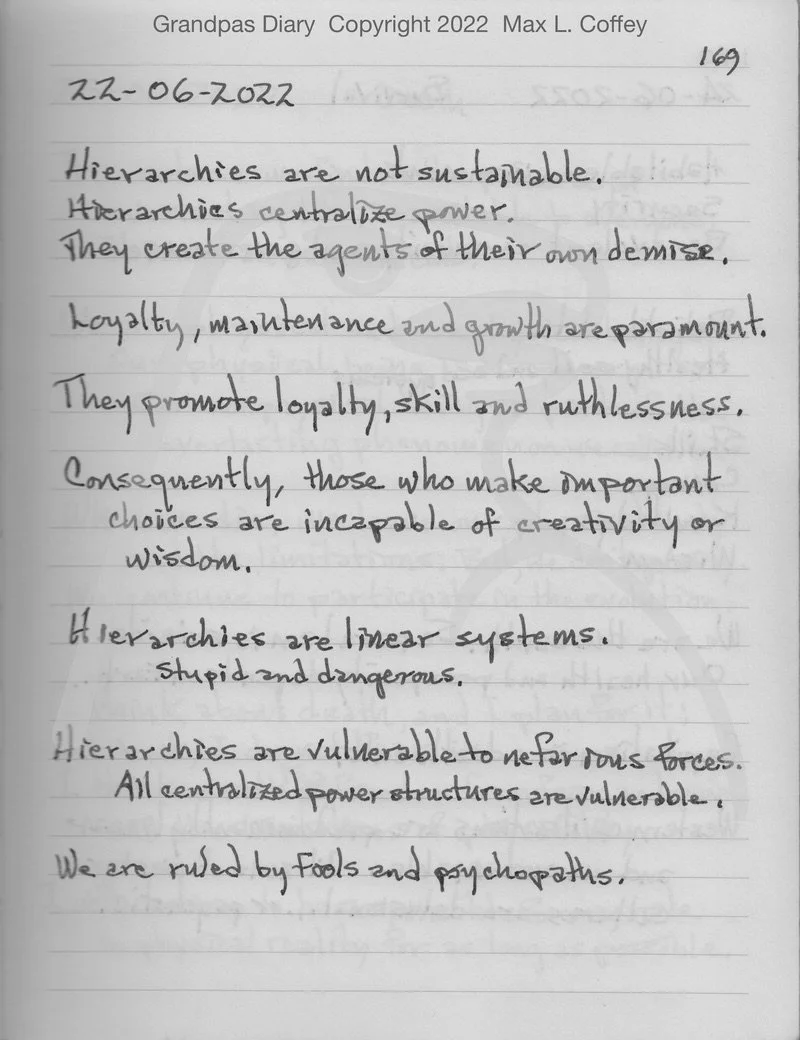 Grandpas Diary Copyright 2022 Max L. Coffey
169
22-06-2022
Hierarchies are not sustainable.
Hierarchies centralize power.
They create the agents of their own demise.
Loyalty, maintenance and growth are paramount.
They promote loyalty, skill and ruthlessness.
Consequently, those who make important
choices are incapable of creativity or
wisdom.
Hierarchies are linear systems.
Stupid and dangerous.
Hierarchies are vulnerable to nefarious forces.
All centralized power structures are vulnerable.
We are ruled by fools and psychopaths.